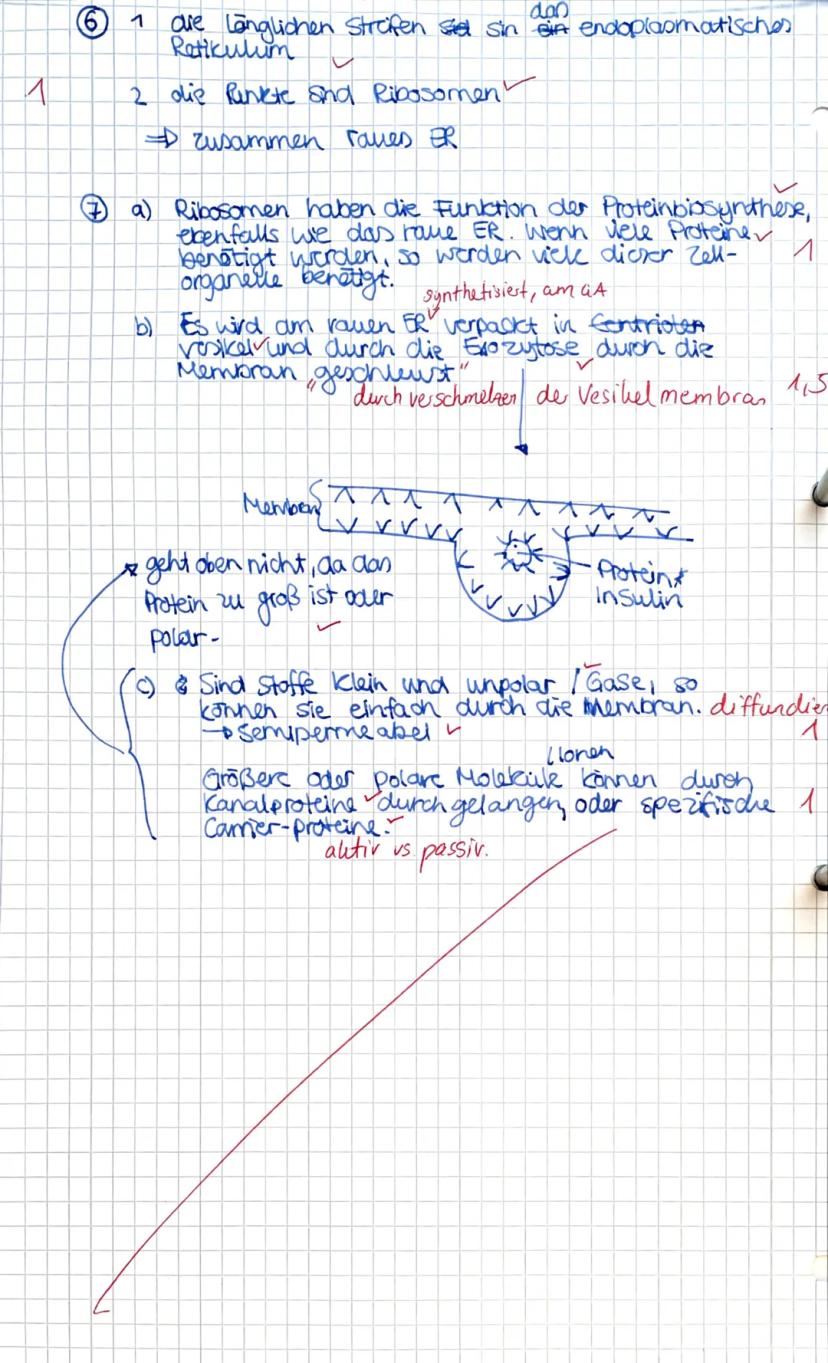 ⑥ 1 die länglichen Streifen sin das endoplasmatisches
Retikulum
1
2 die Punkte sind Ribosomen
⇒ zusammen raues ER
⑦ a) Ribosomen haben die Funktion der Proteinbiosynthese,
ebenfalls wie das raue ER. Wenn viele Proteine
benötigt werden, so werden viele dieser Zell-
1
organelle benötigt.
synthetisiert, am GA
b) Es wird am rauen ER verpackt in Centriolen
Vesikel und durch die Exozytose durch die
Membran „geschleust"
durch verschmelzen der Vesikelmembran
1,5
Membran
geht oben nicht, da das
Protein zu groß ist oder
polar.
Protein
Insulin
c) Sind Stoffe klein und unpolar / Gase, so
können sie einfach durch die Membran. diffundier
→ semipermeabel
1
Ionen
Größere oder polare Moleküle können durch
Kanalproteine durchgelangen, oder spezifische
1
Carrier-Proteine.
aktiv vs passiv.